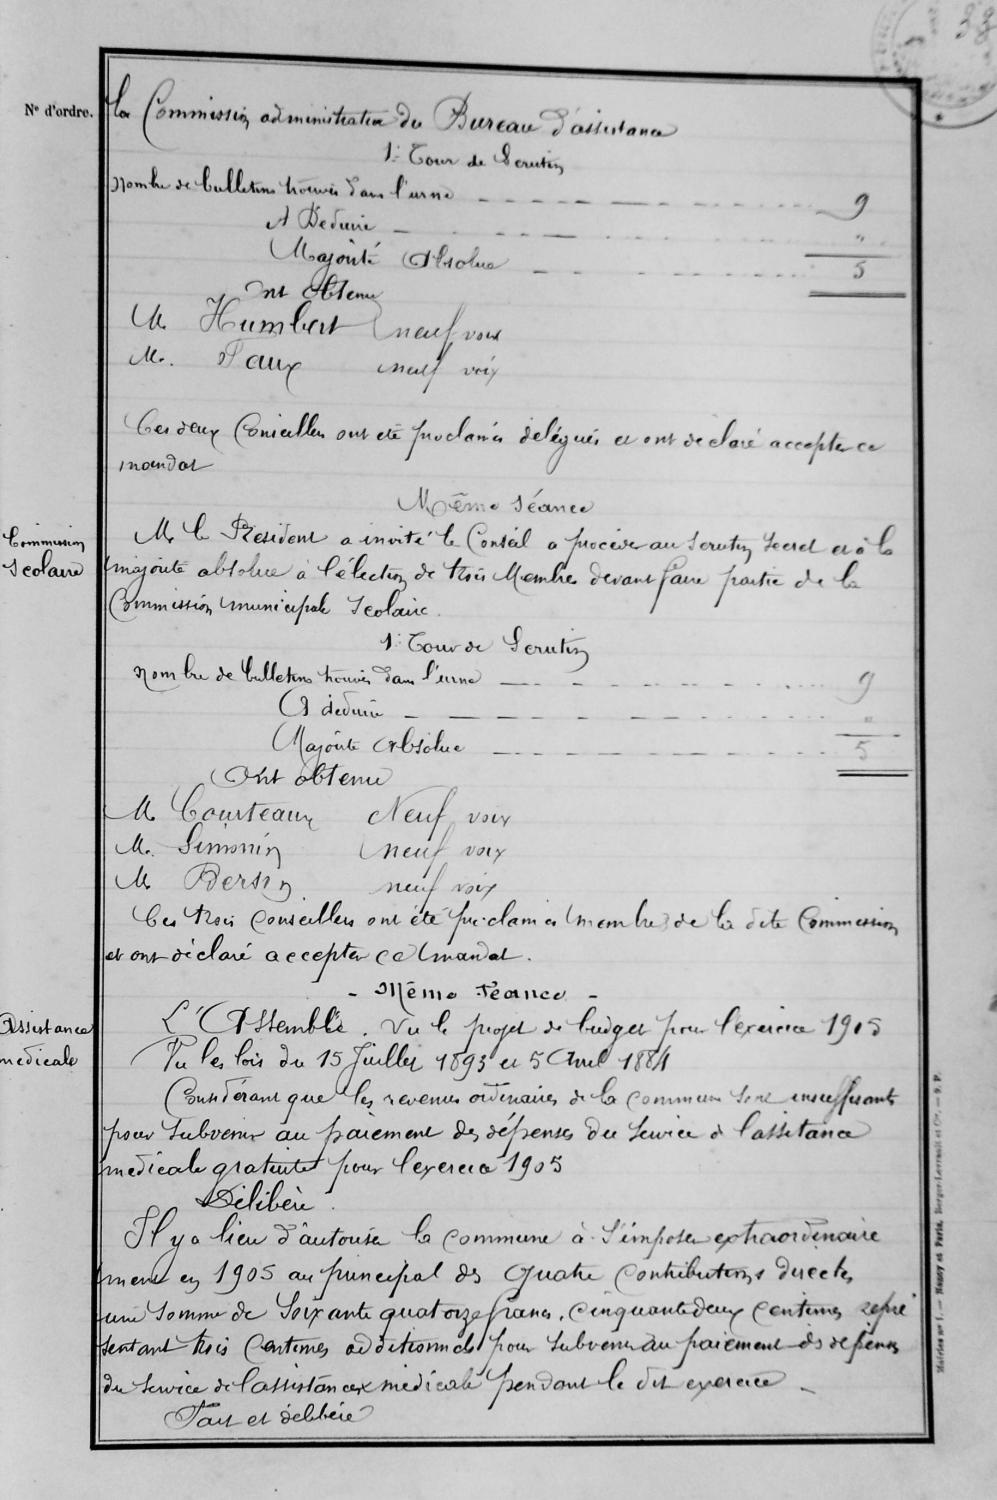 33
N° d'ordre.
la Commission administrative du Bureau d'assistance
1er Tour de Scrutin
Nombre de bulletins trouvés dans l'urne 9
A Déduire "
Majorité Absolue 5
Ont obtenu
M Humbert neuf voix
M. Paux neuf voix
Ces deux Conseillers ont été proclamés délégués et ont déclaré accepter ce
mandat
Même séance
Commission
Scolaire
M le Président a invité le Conseil a procéder au scrutin secret et à la
majorité absolue à l'élection de trois Membres devant faire partie de la
Commission municipale Scolaire.
1er Tour de Scrutin
Nombre de bulletins trouvés dans l'urne 9
A déduire "
Majorité Absolue 5
Ont obtenu
M Courteaux Neuf voix
M. Simonin neuf voix
M Bersin neuf voix
Ces trois conseillers ont été proclamés membres de la dite Commission
et ont déclaré accepter ce mandat.
- Même séance -
Assistance
médicale
L'Assemblée. Vu le projet de budget pour l'exercice 1905
Vu les lois du 15 Juillet 1893 et 5 Avril 1884
Considérant que les revenus ordinaires de la commune sont insuffisants
pour subvenir au paiement des dépenses du service d l'assitance
médicale gratuite pour l'exercice 1905
Délibère.
Il y a lieu d'autoriser la commune à s'imposer extraordinaire
ment en 1905 au principal des quatre contributions directes
une somme de soixante quatorze francs, cinquante deux centimes repré
sentant trois centimes additionnels pour subvenir au paiement des dépenses
du service de l'assistance médicale pendant le dit exercice
Fait et délibéré
Mairies n° 1. — Nancy et Paris, Berger-Levrault et Cie. — 9. P.